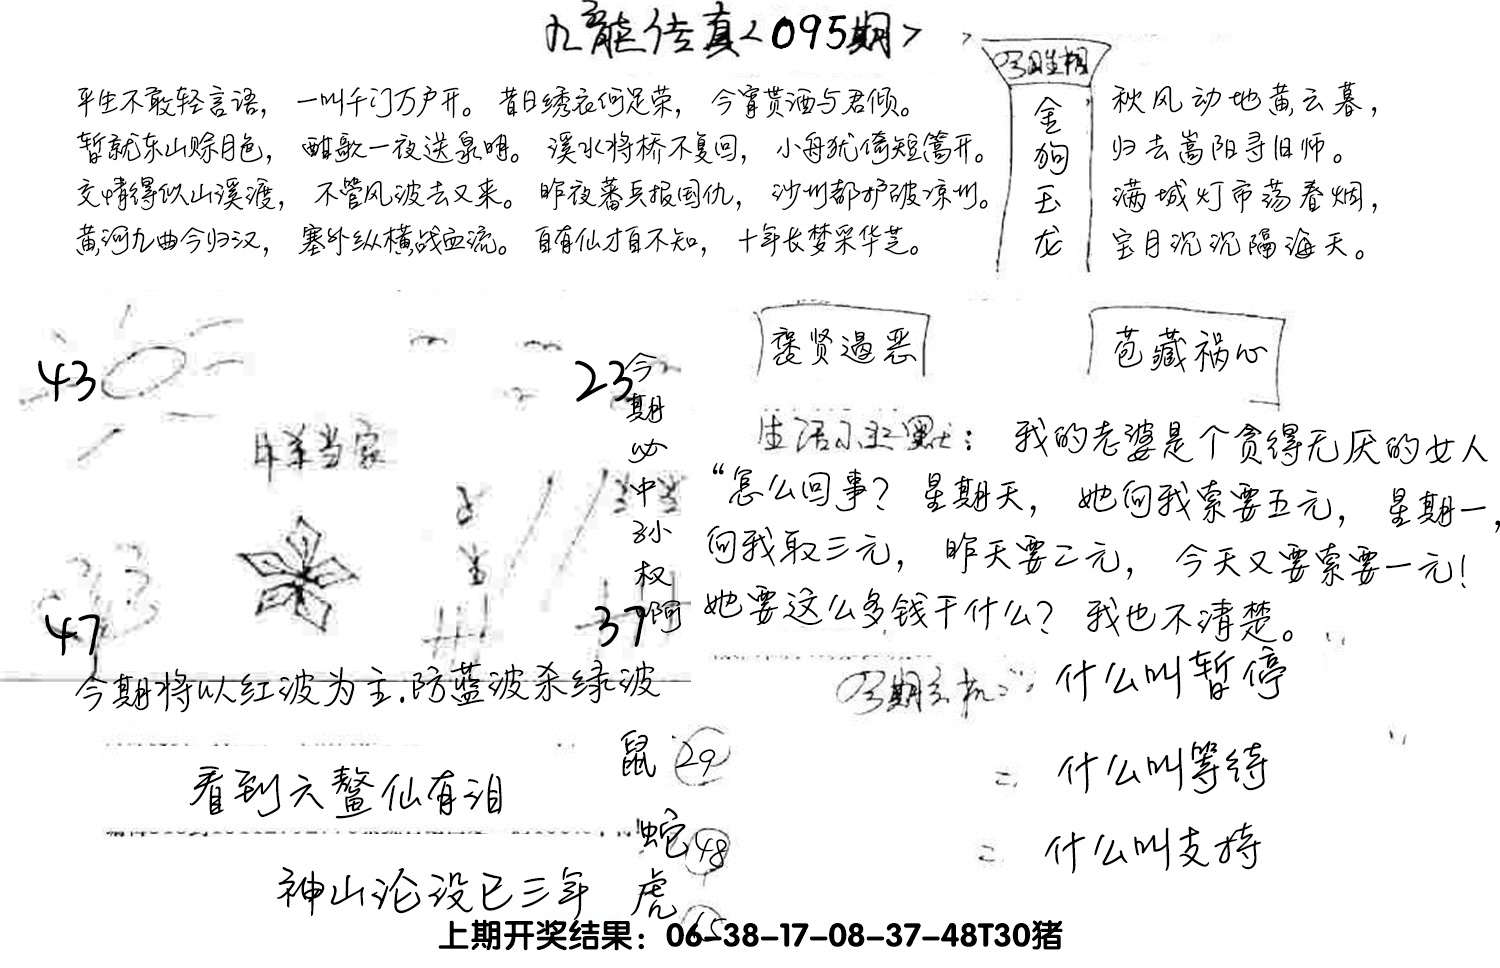 九龙传真<095期>
平生不敢轻言语，一叫千门万户开。昔日绣衣何足荣，今宵贳酒与君倾。
暂就东山赊月色，酣歌一夜送泉明。溪水将桥不复回，小舟犹倚短篙开。
交情得似山溪渡，不管风波去又来。昨夜蕃兵报国仇，沙州都护破凉州。
黄河九曲今归汉，塞外纵横战血流。自有仙才自不知，十年长梦采华芝。
今日生相
金狗玉龙
秋风动地黄云暮，
归去嵩阳寻旧师。
满城灯市荡春烟，
宝月沉沉隔海天。
43
23
羊当家
47
37
今期必中孙权啊
今期将以红波为主.防蓝波杀绿波
褒贤遏恶
苞藏祸心
生活小幽默：我的老婆是个贪得无厌的女人
“怎么回事？星期天，她向我索要五元，星期一，
向我取三元，昨天要二元，今天又要索要一元！
她要这么多钱干什么？我也不清楚。
今期玄机：什么叫暂停
= 什么叫等待
= 什么叫支持
看到六鳌仙有泪
神山沦没已三年
鼠 29
蛇 48
虎
上期开奖结果：06-38-17-08-37-48T30猪